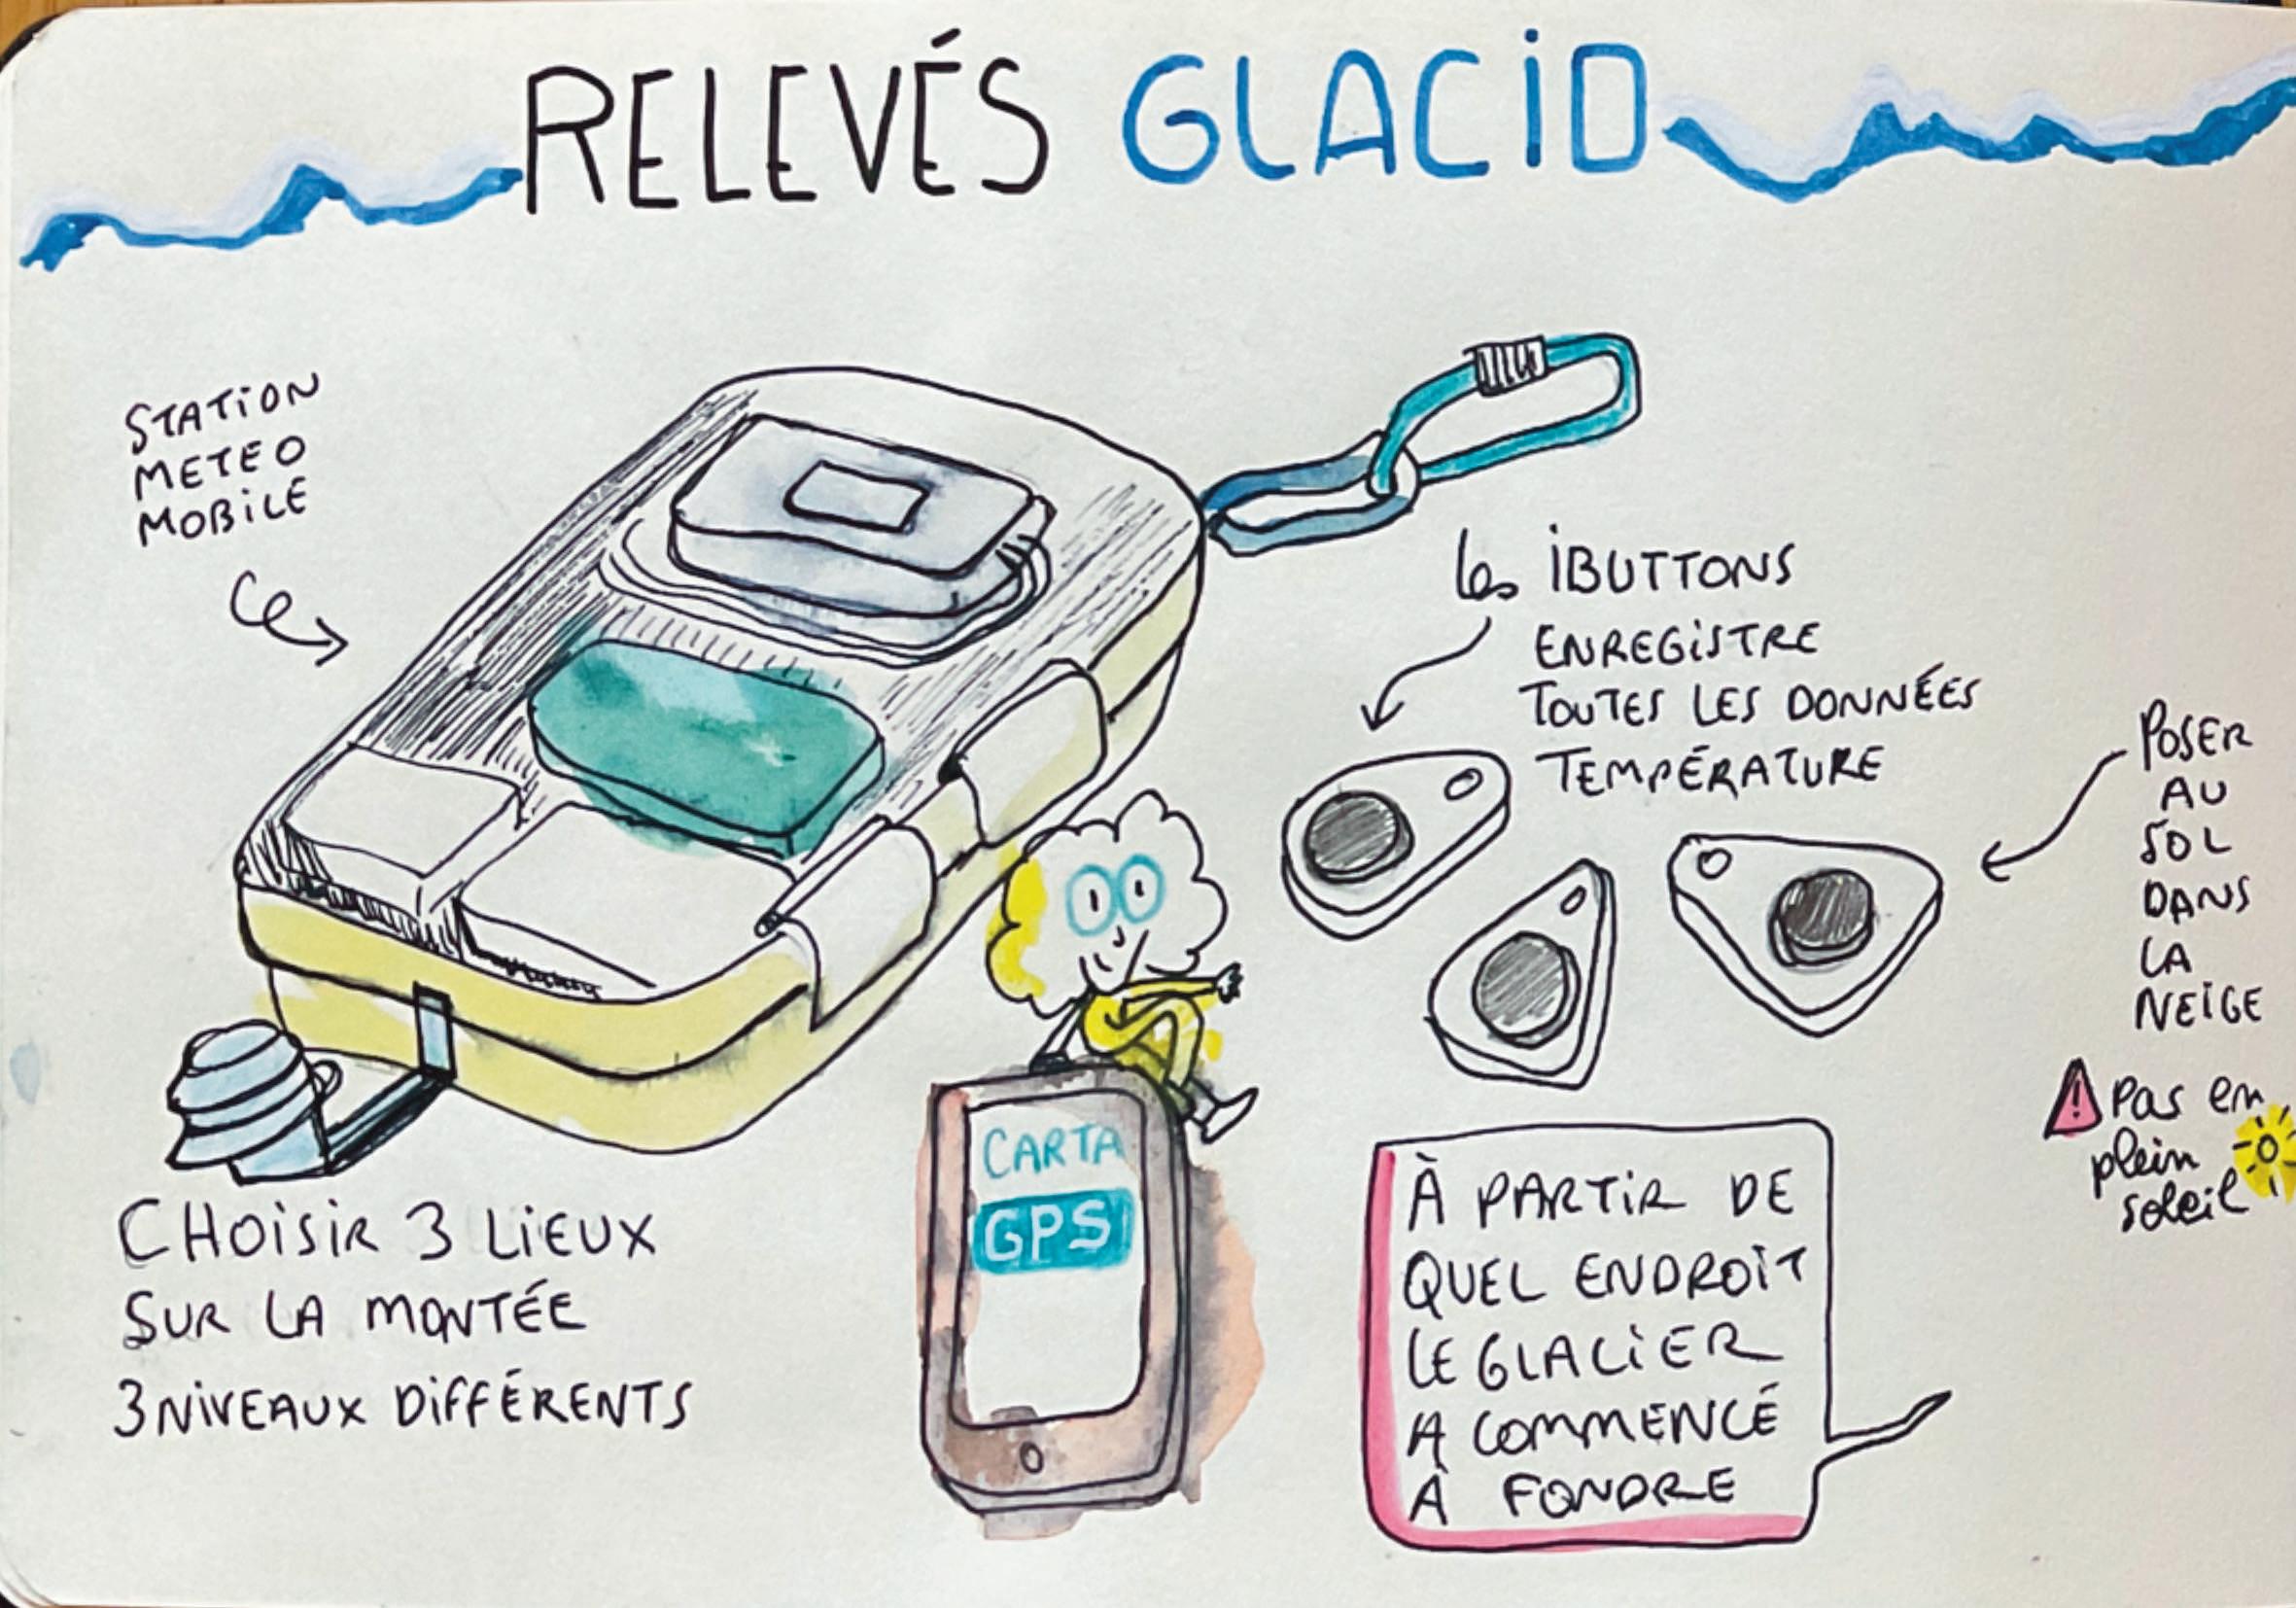 RELEVÉS GLACIO
STATION
METEO
MOBILE
les IBUTTONS
ENREGISTRE
TOUTES LES DONNÉES
TEMPÉRATURE
POSER
AU
SOL
DANS
LA
NEIGE
! pas en
plein
soleil
CARTA
GPS
CHOISIR 3 LIEUX
SUR LA MONTÉE
3 NIVEAUX DIFFÉRENTS
À PARTIR DE
QUEL ENDROIT
LE GLACIER
A COMMENCÉ
À FONDRE